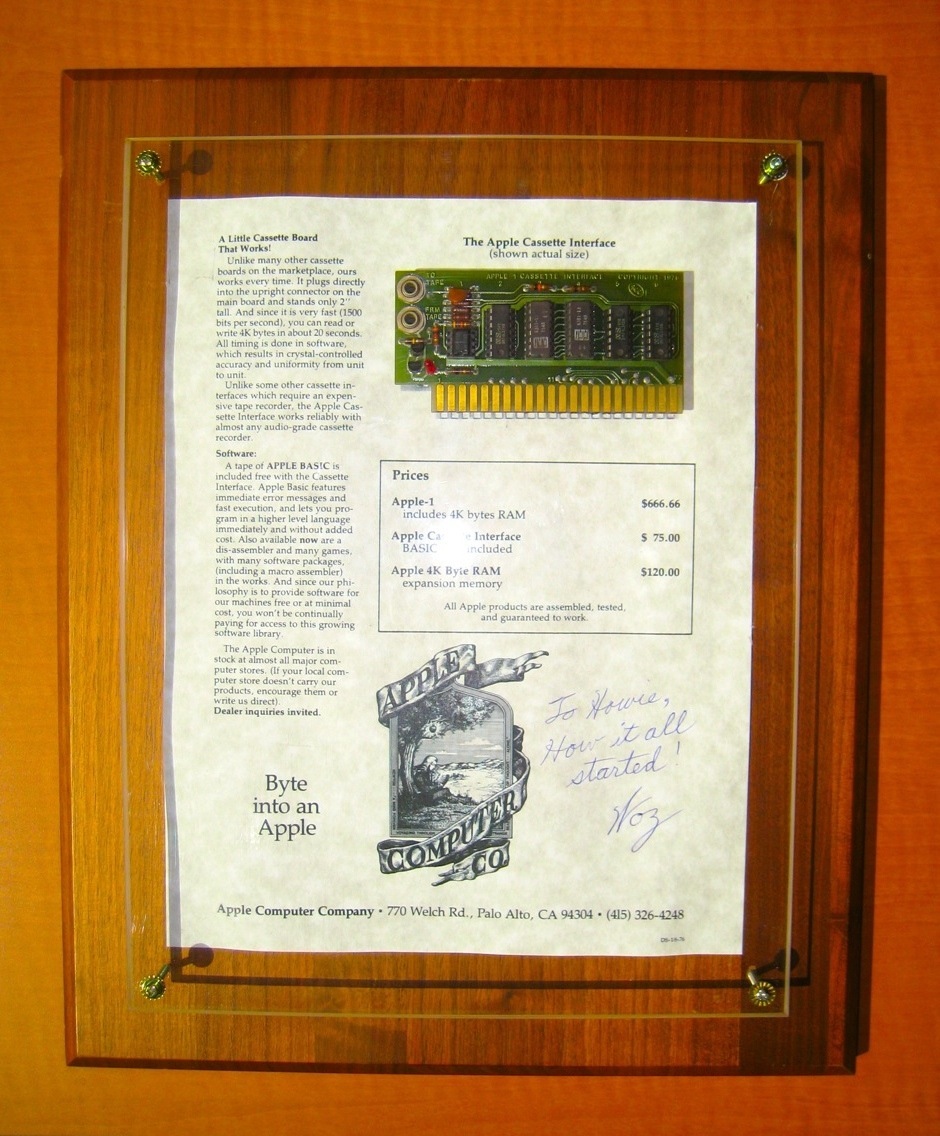 A Little Cassette Board
That Works!
Unlike many other cassette
boards on the marketplace, ours
works every time. It plugs directly
into the upright connector on the
main board and stands only 2"
tall. And since it is very fast (1500
bits per second), you can read or
write 4K bytes in about 20 seconds.
All timing is done in software,
which results in crystal-controlled
accuracy and uniformity from unit
to unit.
Unlike some other cassette in-
terfaces which require an expen-
sive tape recorder, the Apple Cas-
sette Interface works reliably with
almost any audio-grade cassette
recorder.
Software:
A tape of APPLE BASIC is
included free with the Cassette
Interface. Apple Basic features
immediate error messages and
fast execution, and lets you pro-
gram in a higher level language
immediately and without added
cost. Also available now are a
dis-assembler and many games,
with many software packages,
(including a macro assembler)
in the works. And since our phi-
losophy is to provide software for
our machines free or at minimal
cost, you won't be continually
paying for access to this growing
software library.
The Apple Computer is in
stock at almost all major com-
puter stores. (If your local com-
puter store doesn't carry our
products, encourage them or
write us direct).
Dealer inquiries invited.
Byte
into an
Apple
The Apple Cassette Interface
(shown actual size)
TO
TAPE
APPLE 1 CASSETTE INTERFACE COPYRIGHT 1976
TAPE
Prices
Apple-1 $666.66
includes 4K bytes RAM
Apple Interface $ 75.00
BASIC included
Apple 4K Byte RAM $120.00
expansion memory
All Apple products are assembled, tested,
and guaranteed to work.
APPLE
COMPUTER
CO
To Howie,
How it all
started!
Woz
Apple Computer Company • 770 Welch Rd., Palo Alto, CA 94304 • (415) 326-4248